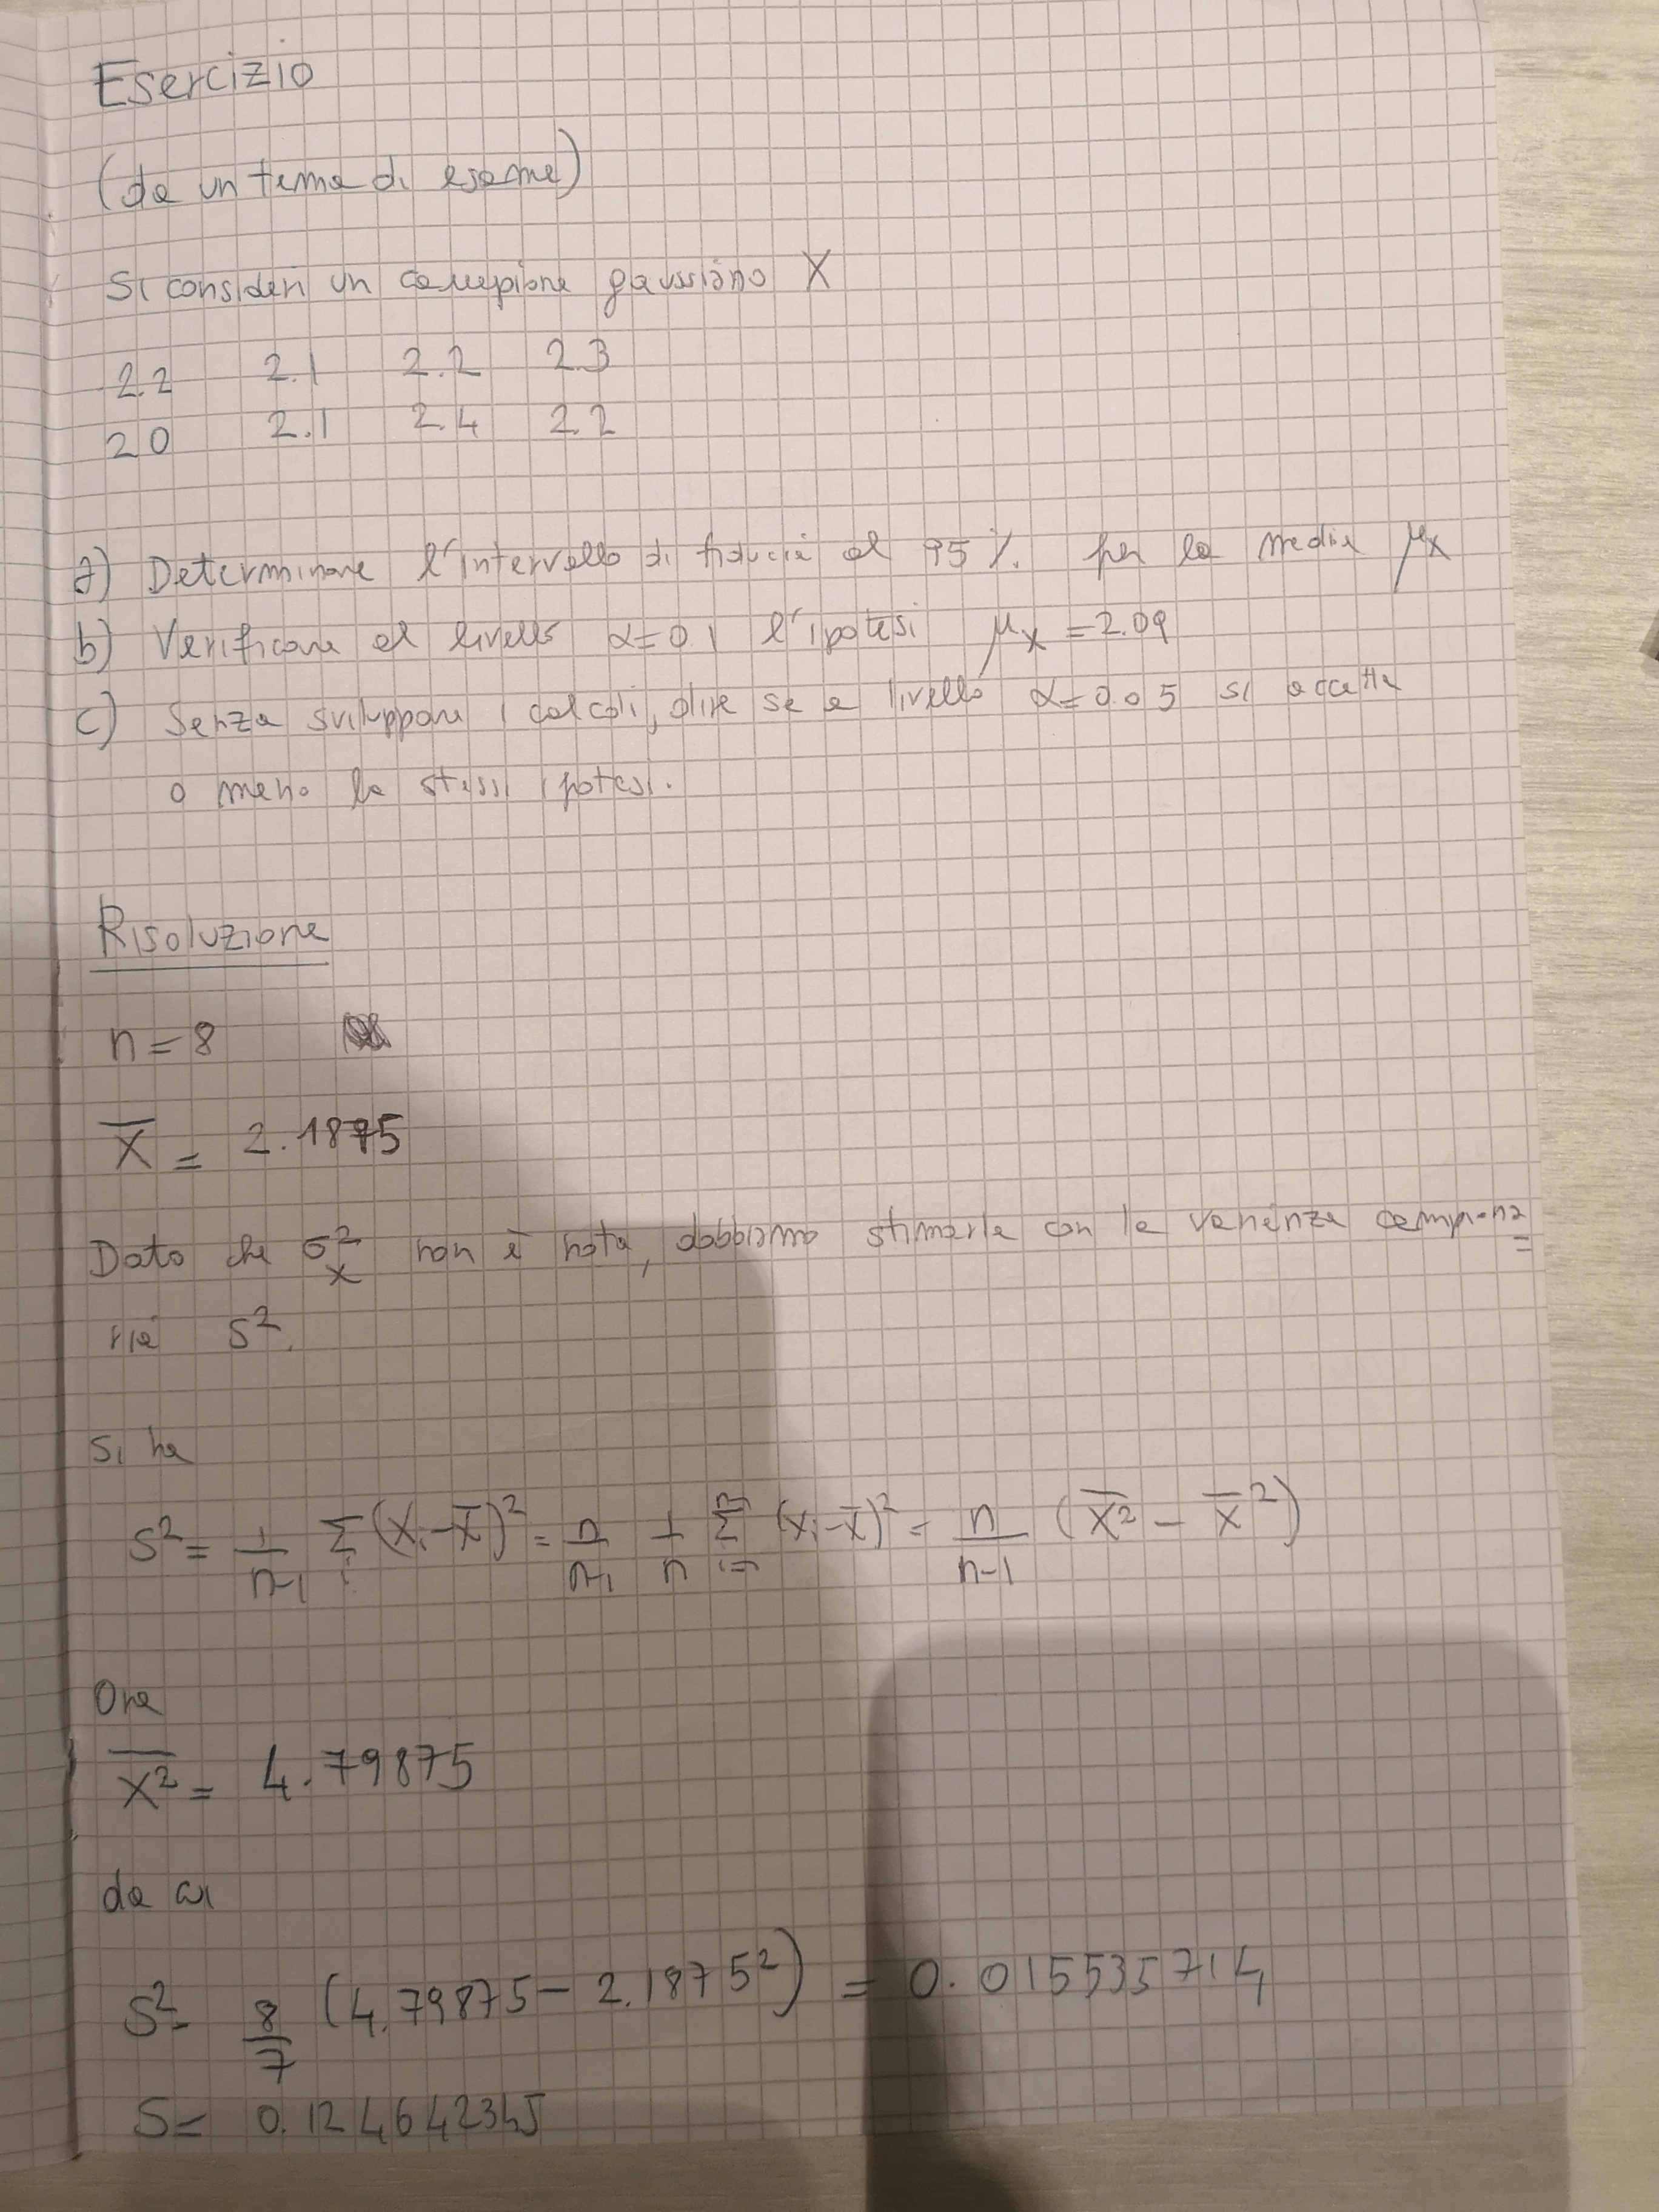 Esercizio
(da un tema di esame)
Si consideri un campione gaussiano X
2.2 2.1 2.2 2.3
2.0 2.1 2.4 2.2
a) Determinare l'intervallo di fiducia al 95 % per la media μx
b) Verificare al livello α=0.1 l'ipotesi μx = 2.09
c) Senza sviluppare i calcoli, dire se a livello α=0.05 si accetta
o meno la stessa ipotesi.
Risoluzione
n = 8
X̅ = 2.1875
Dato che σ²x non è nota, dobbiamo stimarla con la varianza campiona=
ria s².
Si ha
S² = 1/(n-1) Σi (Xi - X̅)² = n/(n-1) 1/n Σ(i=1)^n (Xi - X̅)² = n/(n-1) (X²̅ - X̅²)
Ora
X²̅ = 4.79875
da cui
S² = 8/7 (4.79875 - 2.1875²) = 0.015535714
S = 0.124642345